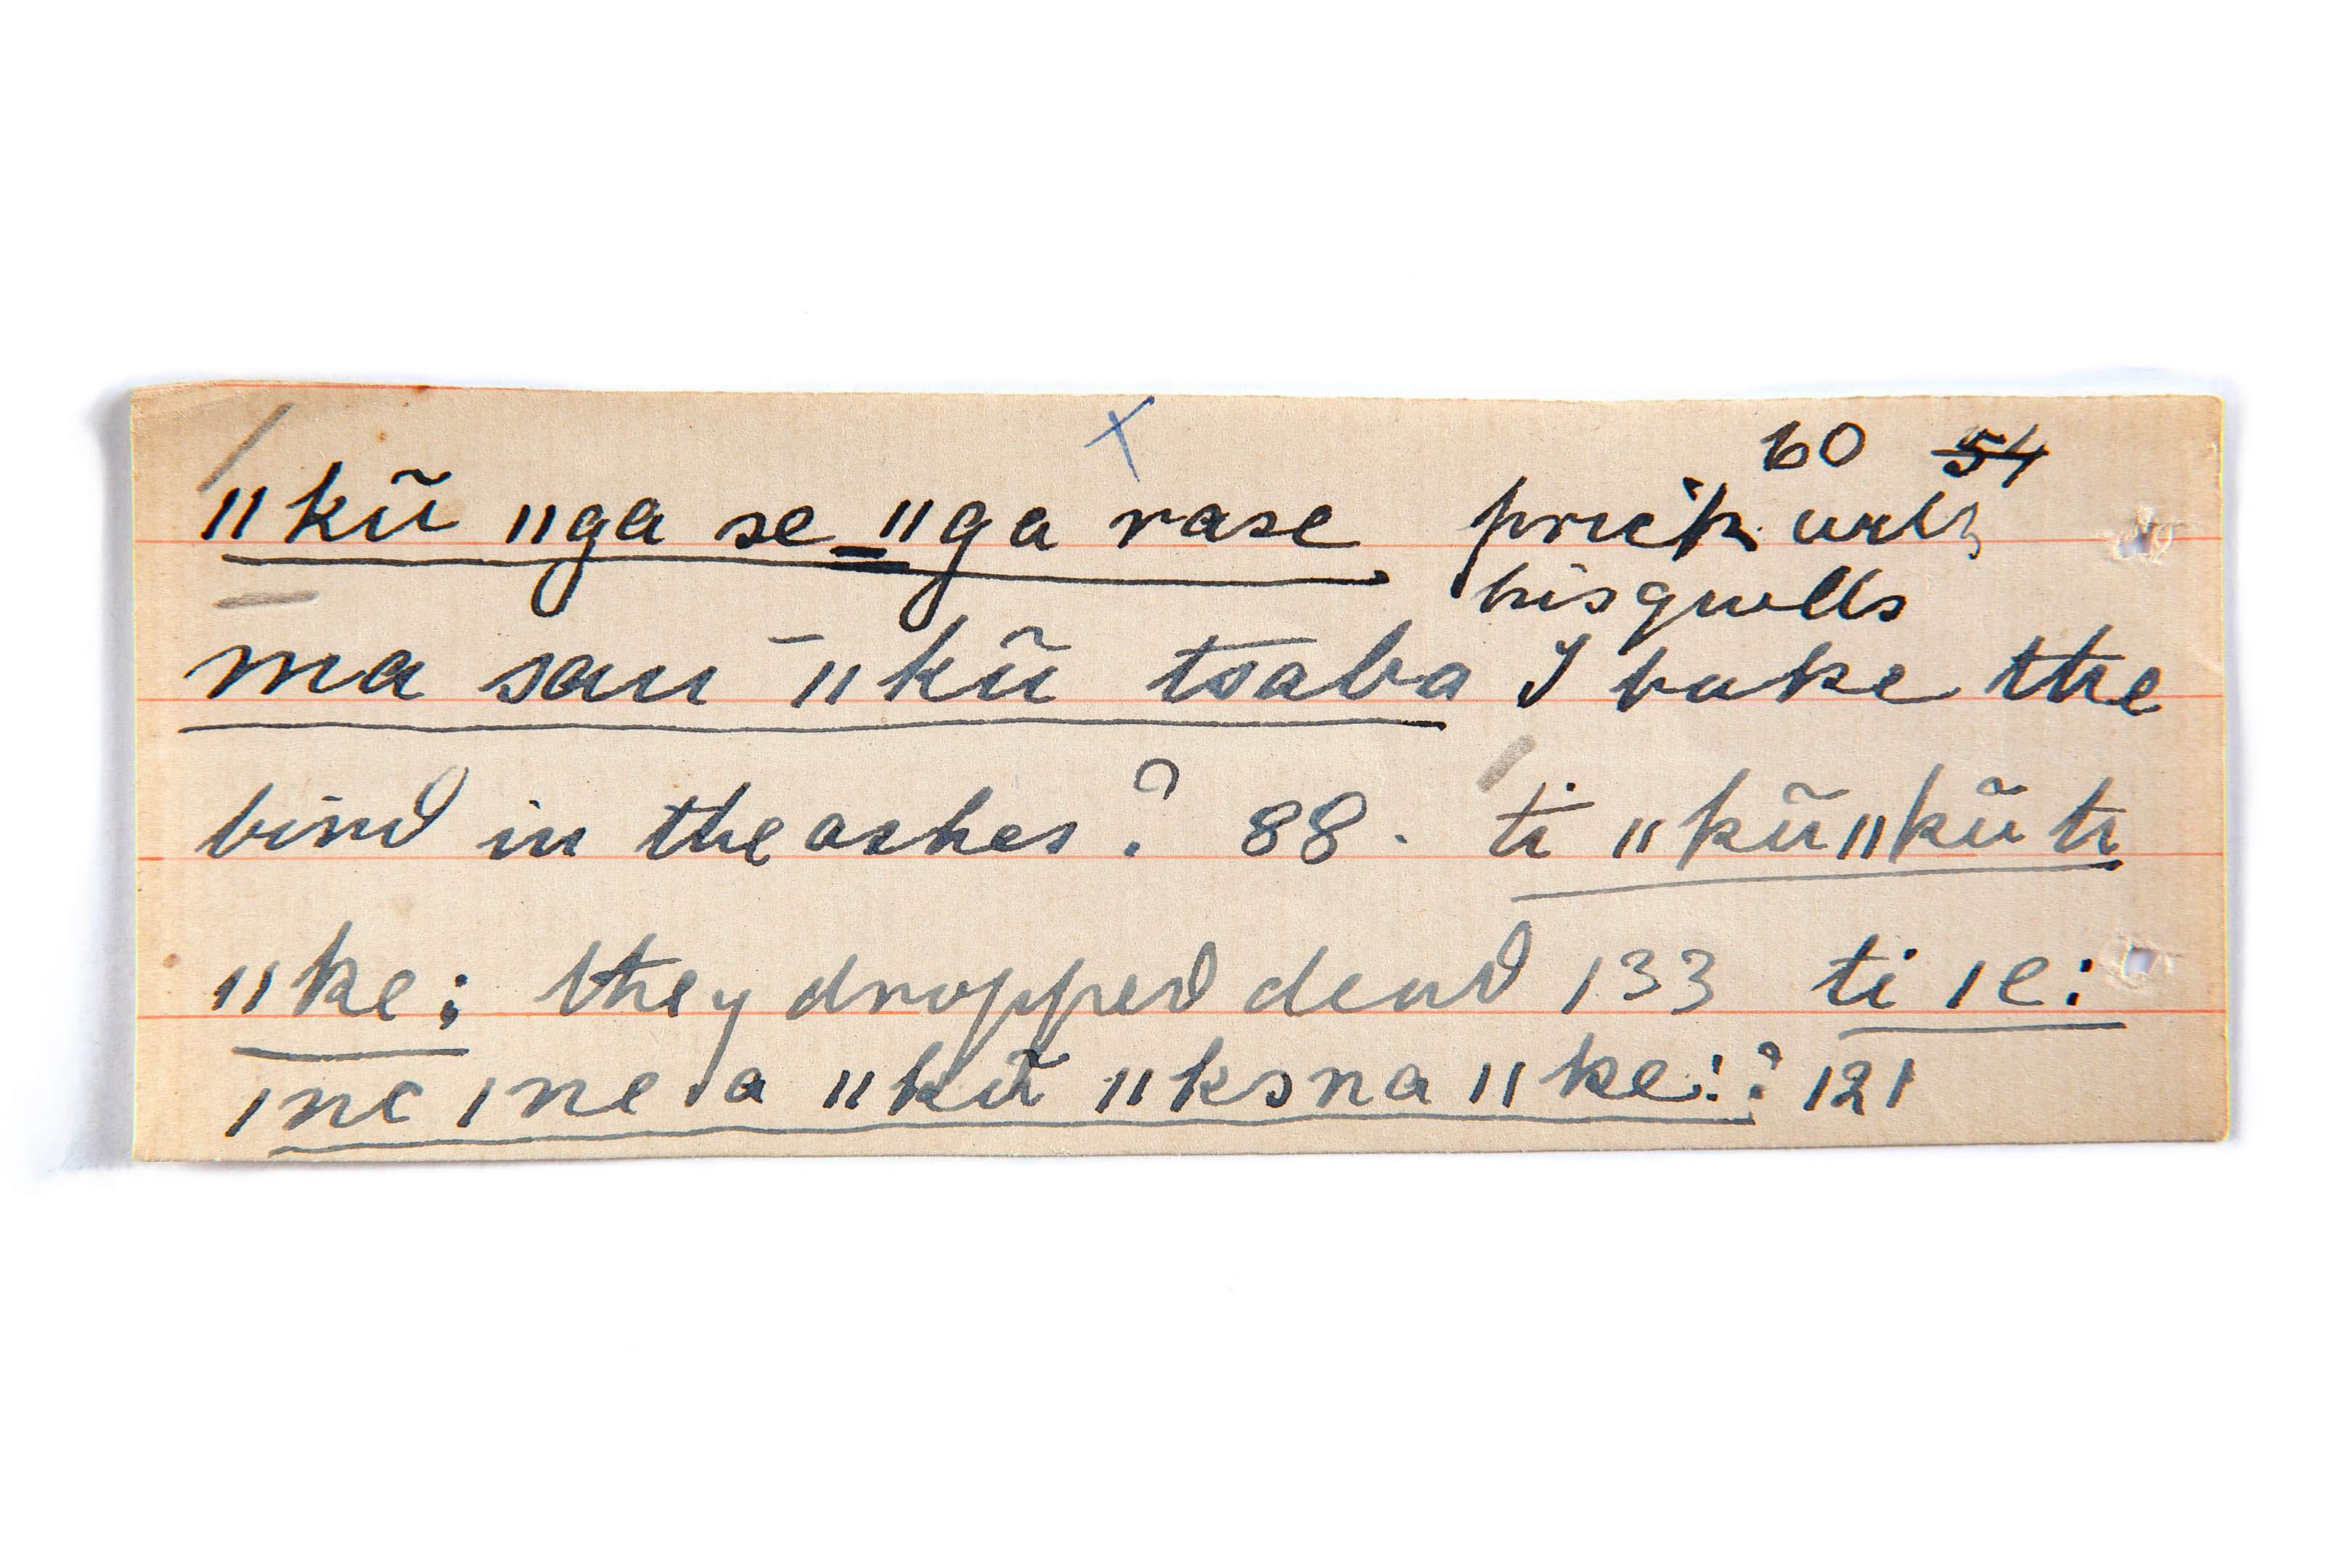 x
60 54
ǁkũ ǁga se ǁga rase prick with
his quills
ma sau ǁkũ tsaba I bake the
bird in the ashes? 88. ti ǁkũǁkũ ti
ǁke: they dropped dead 133 ti ǀe:
ǀne ǀne a ǁkũ ǁksna ǁke:? 121